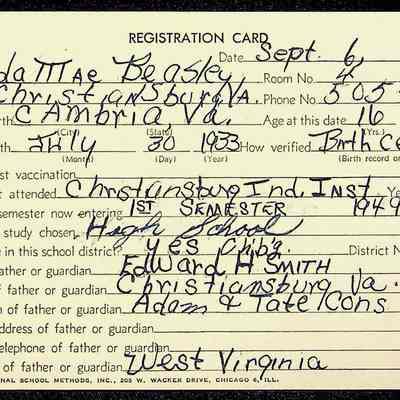 REGISTRATION CARD
Date Sept. 6,
da Mae Beasley Room No. 4
Christiansburg VA. Phone No. 505
rth CAmbria, Va. Age at this date 16
(City) (State) (Yrs.)
July 30 1933 How verified Birth Ce
(Month) (Day) (Year) (Birth record or
st vaccination
st attended Christiansburg Ind. Inst. Ye
semester now entering 1ST SEMESTER 1949
study chosen High School
e in this school district? yes District N
ather or guardian EdWard H SMITH
of father or guardian Christiansburg Va.
n of father or guardian Adam & Tate Cons
ddress of father or guardian
elephone of father or guardian
of father or guardian West Virginia
NAL SCHOOL METHODS, INC., 205 W. WACKER DRIVE, CHICAGO 6, ILL.